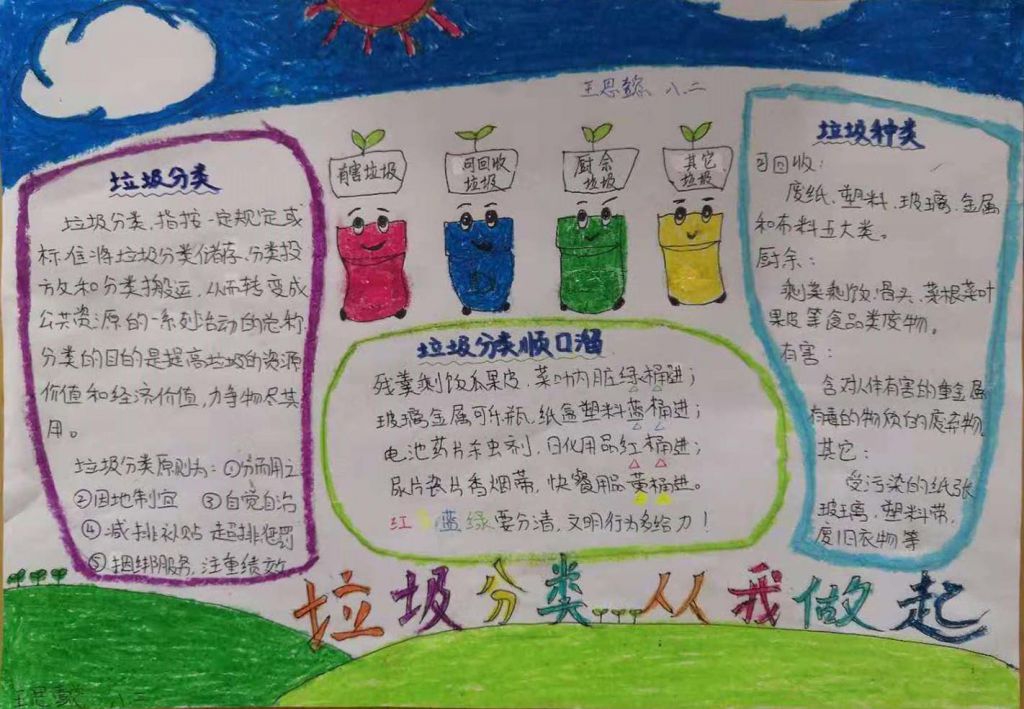 王思懿 八二
垃圾分类
垃圾分类，指按一定规定或
标准将垃圾分类储存、分类投
放和分类搬运，从而转变成
公共资源的一系列活动的总称。
分类的目的是提高垃圾的资源
价值和经济价值，力争物尽其
用。
垃圾分类原则为：①分而用之
②因地制宜 ③自觉自治
④减排补贴 超排惩罚
⑤捆绑服务，注重绩效
有害垃圾
可回收
垃圾
厨余
垃圾
其它
垃圾
垃圾分类顺口溜
残羹剩饭瓜果皮，菜叶内脏绿桶进；
玻璃金属可乐瓶，纸盒塑料蓝桶进；
电池药片杀虫剂，日化用品红桶进；
尿片瓷片香烟蒂，快餐用品黄桶进。
红黄蓝绿要分清，文明行为多给力！
垃圾种类
可回收：
废纸、塑料、玻璃、金属
和布料五大类。
厨余：
剩菜剩饭、骨头、菜根菜叶
果皮等食品类废物。
有害：
含对人体有害的重金属
有毒的物质的废弃物
其它：
受污染的纸张
玻璃，塑料带，
废旧衣物等
垃圾分类 从我做起
王思懿 八二